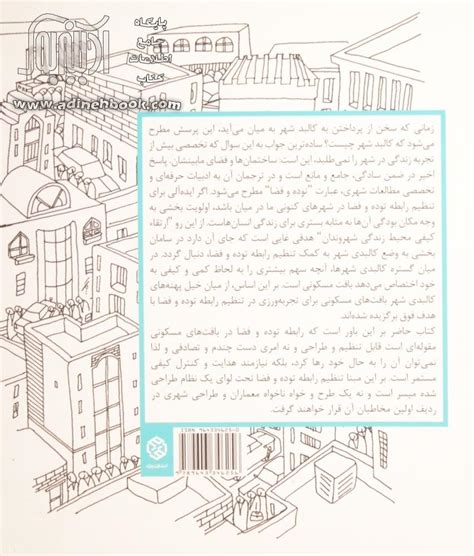 پایگاه
جامع
اطلاعات
کتاب
آدینه‌بوک
www.adinehbook.com
زمانی که سخن از پرداختن به کالبد شهر به میان می‌آید، این پرسش مطرح
می‌شود که کالبد شهر چیست؟ ساده‌ترین جواب به این سوال که تخصصی بیش از
تجربه زندگی در شهر را نمی‌طلبد، این است: ساختمان‌ها و فضای مابینشان. پاسخ
اخیر در ضمن سادگی، جامع و مانع است و در ترجمان آن به ادبیات حرفه‌ای و
تخصصی مطالعات شهری، عبارت "توده و فضا" مطرح می‌شود. اگر ایده‌آلی برای
تنظیم رابطه توده و فضا در شهرهای کنونی ما در میان باشد، اولویت بخشی به
وجه مکان بودگی آن‌ها به مثابه بستری برای زندگی انسان‌هاست. از این رو "ارتقا
کیفی محیط زندگی شهروندان" هدفی غایی است که جای آن دارد در سامان
بخشی به وضع کالبدی شهر به کمک تنظیم رابطه توده و فضا دنبال گردد. در
میان گستره کالبدی شهرها، آنچه سهم بیشتری را به لحاظ کمی و کیفی به
خود اختصاص می‌دهد بافت مسکونی است. بر این اساس، از میان خیل پهنه‌های
کالبدی شهر بافت‌های مسکونی برای تجربه‌ورزی در تنظیم رابطه توده و فضا با
هدف فوق برگزیده شده‌اند.
کتاب حاضر بر این باور است که رابطه توده و فضا در بافت‌های مسکونی
مقوله‌ای است قابل تنظیم و طراحی و نه امری دست چندم و تصادفی و لذا
نمی‌توان آن را به حال خود رها کرد، بلکه نیازمند هدایت و کنترل کیفی
مستمر است. بر این مبنا تنظیم رابطه توده و فضا تحت لوای یک نظام طراحی
شده میسر است و نه یک طرح و خواه ناخواه معماران و طراحی شهری در
ردیف اولین مخاطبان آن قرار خواهند گرفت.